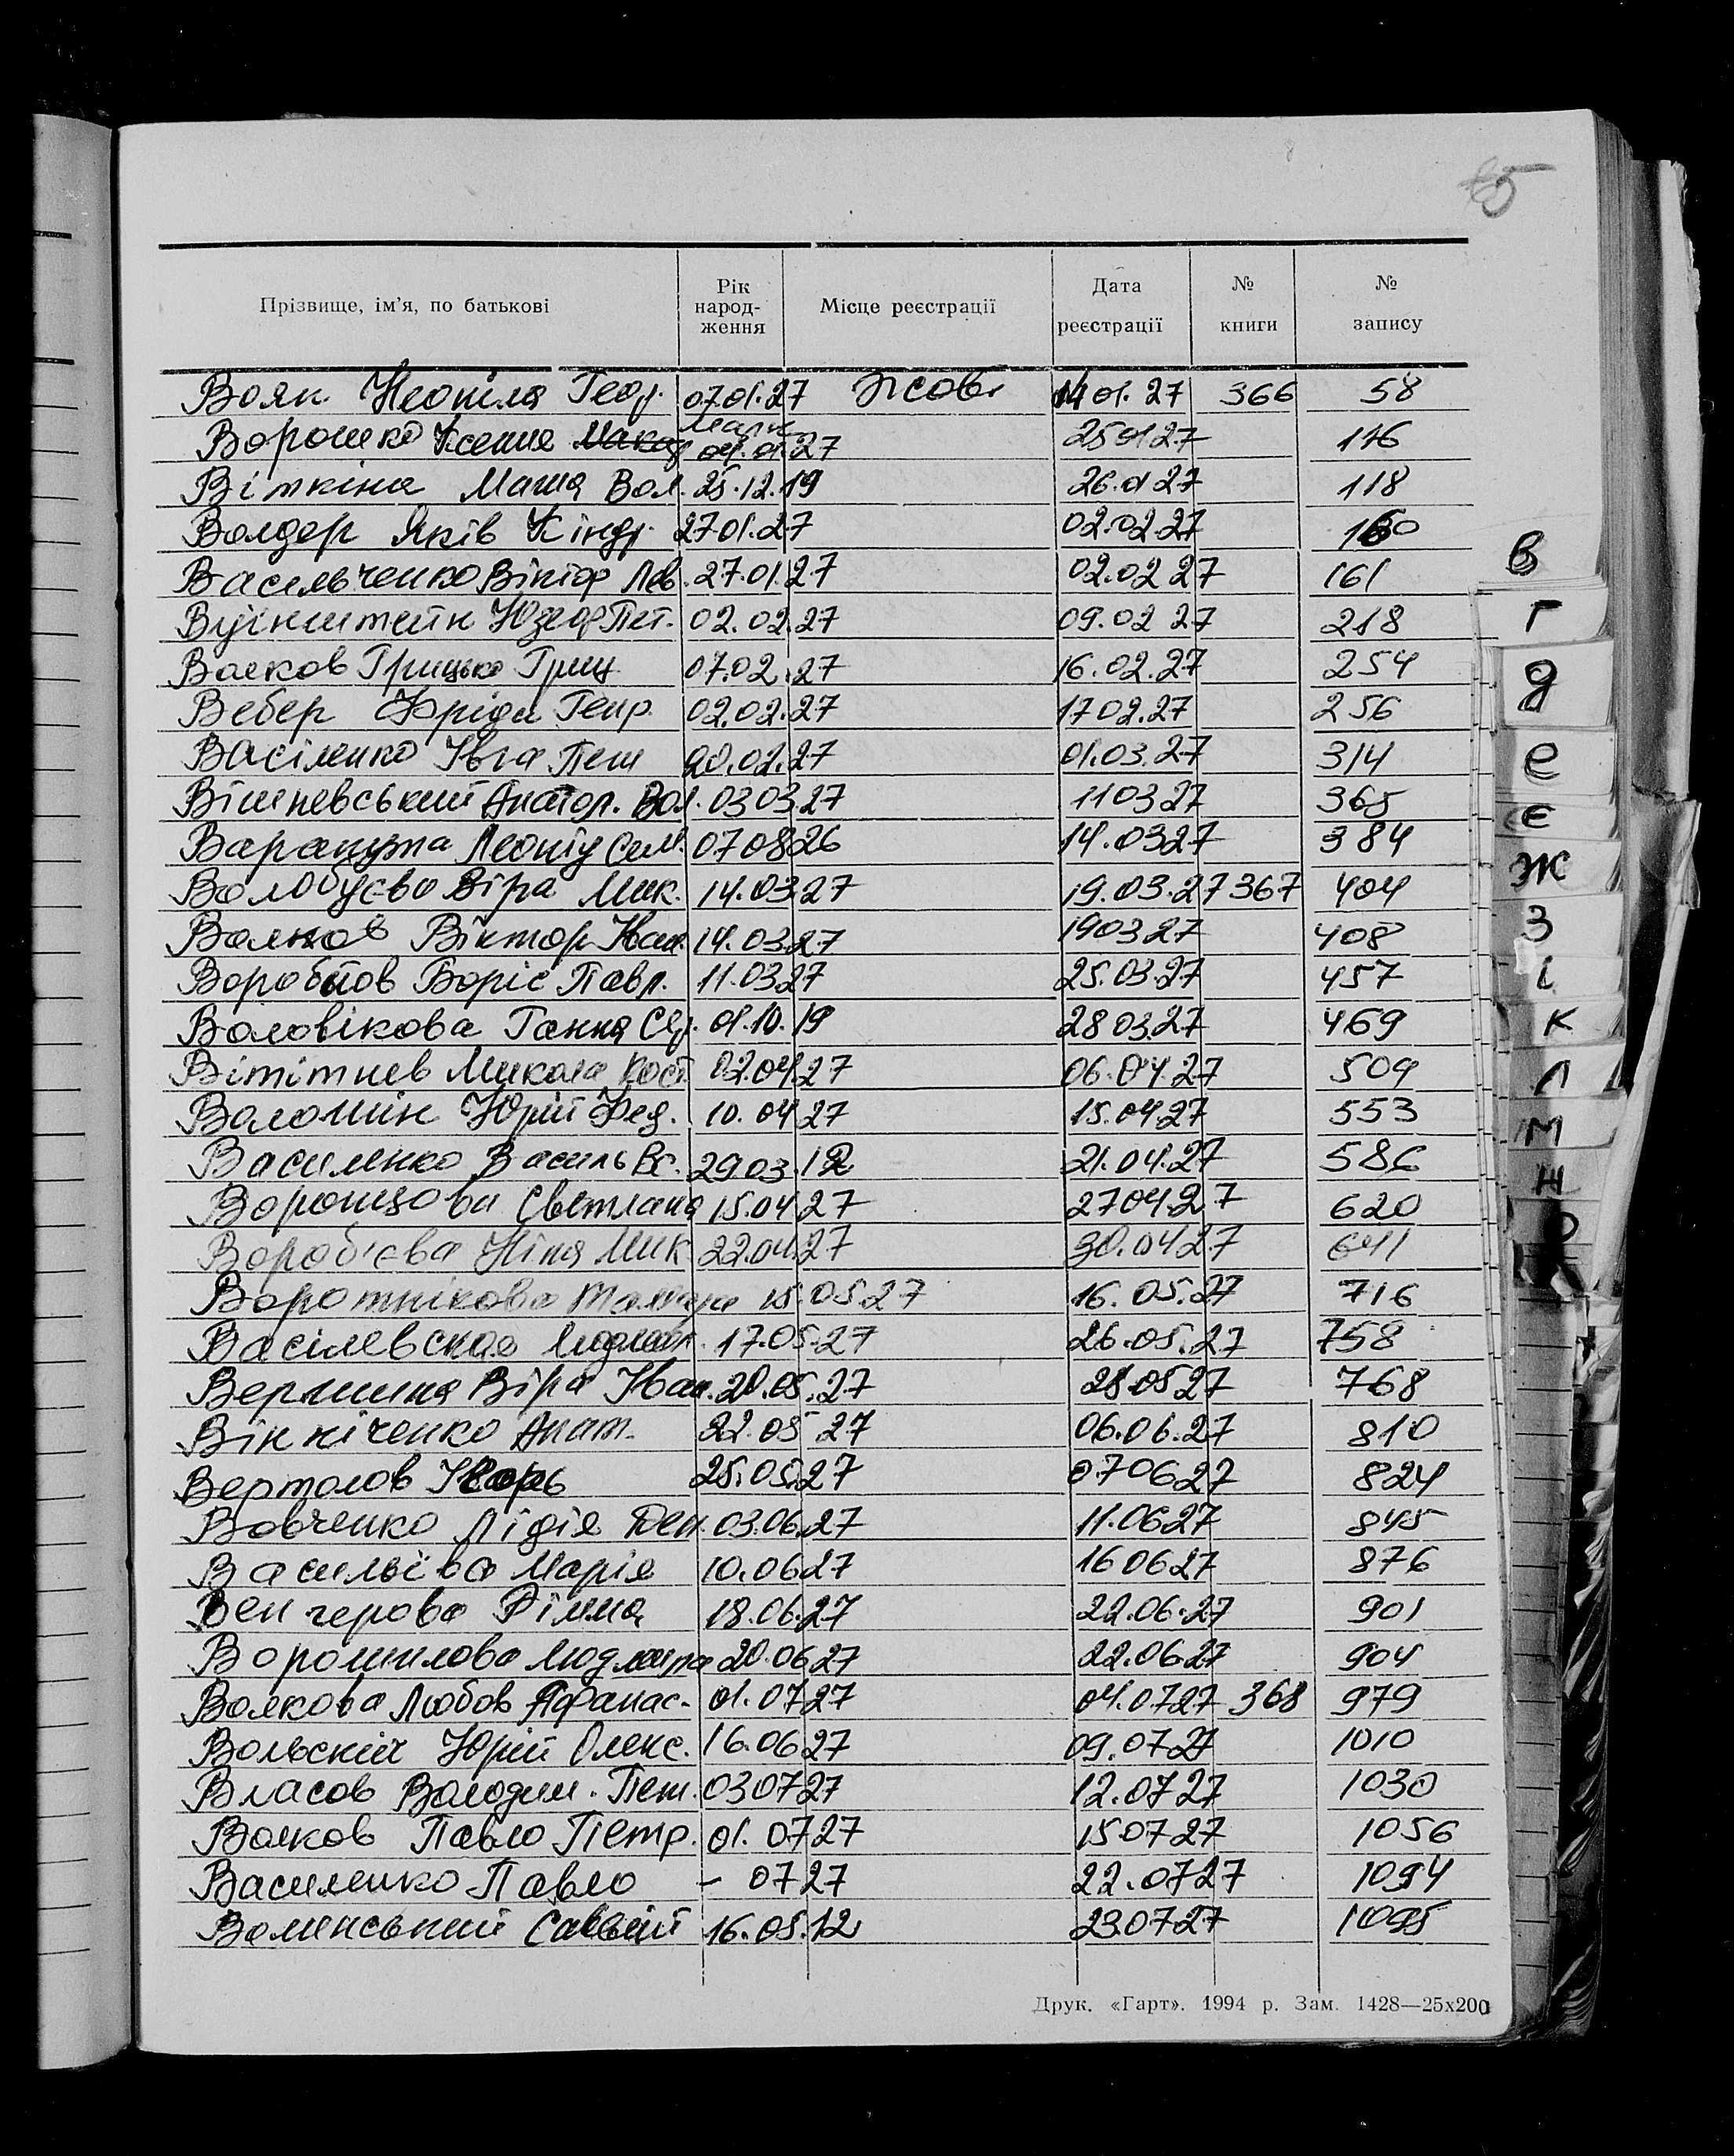 5
Прізвище, ім'я, по батькові Рік народ-ження Місце реєстрації Дата реєстрації № книги № запису
Вояк Геор. 07.01.27 14.01.27 366 58
Ворошко Ксения 04.01.27 25.01.27 116
Віткіна Маша Вол. 25.12.19 26.01.27 118
Волдер Яків Кіндр. 27.01.27 02.02.27 160
Васильченко Віктор Лев. 27.01.27 02.02.27 161
Юзеф Пет. 02.02.27 09.02.27 218
Волков Грицько Гриц 07.02.27 16.02.27 254
Вебер Фріда Генр. 02.02.27 17.02.27 256
Васіленко Івга Пет 20.02.27 01.03.27 314
Вішневський Анатол. Вол. 03.03.27 11.03.27 365
Леонід Сем. 07.08.26 14.03.27 384
Волобуєва Віра Мик. 14.03.27 19.03.27 367 404
Волков Віктор Іван. 14.03.27 19.03.27 408
Воробйов Боріс Павл. 11.03.27 25.03.27 457
Воловікова Ганна Сер. 01.10.19 28.03.27 469
Вітітнев Микола Кост. 02.04.27 06.04.27 509
Воломін Юрій Фед. 10.04.27 15.04.27 553
Василенко Василь Вс. 29.03.12 21.04.27 586
Воронцова Светлана 15.04.27 27.04.27 620
Вороб'єва Ніна Мик. 22.04.27 30.04.27 641
Воротнікова Тамара 15.05.27 16.05.27 716
Васілевская 17.05.27 26.05.27 758
Вершина Віра Іван. 20.05.27 28.05.27 768
Вінніченко Анат. 22.05.27 06.06.27 810
Вертолов Ігорь 25.05.27 07.06.27 824
Вовченко Лідія Ден. 03.06.27 11.06.27 845
Васильєва Марія 10.06.27 16.06.27 876
Венгерова Рімма 18.06.27 22.06.27 901
Ворошилова Людмира 20.06.27 22.06.27 904
Волкова Любов Афанас. 01.07.27 04.07.27 368 979
Вольскич Юрій Олекс. 16.06.27 09.07.27 1010
Власов Володим. Пет. 03.07.27 12.07.27 1030
Волков Павло Петр. 01.07.27 15.07.27 1056
Василенко Павло – 07.27 22.07.27 1094
Воленський 16.05.12 23.07.27 1095
В
Г
Д
Е
Є
Ж
З
І
К
Л
М
Н
О
Друк. «Гарт». 1994 р. Зам. 1428—25х200